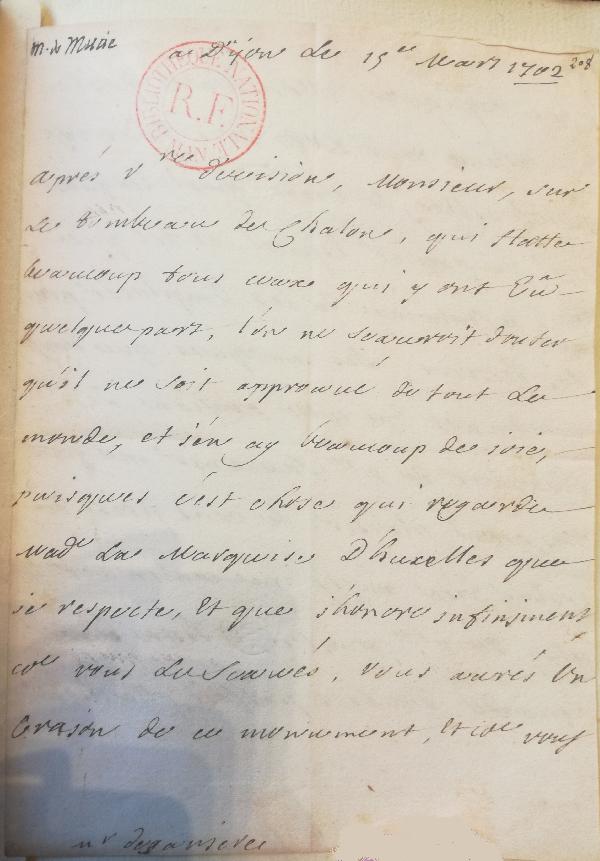 m. de Musie
a Dijon Le 15e Mars 1702 208
BIBLIOTHEQUE NATIONALE MAN R.F.
aprés vre decision, Monsieur, sur
Le tombeau de Chalon, qui flatte
beaucoup tous ceux qui y ont Eu
quelque part, l'on ne scauroit douter
qu'il ne soit approuvé de tout Le
monde, et j'en ay beaucoup de joie,
puisques c'est chose qui regarde
Made La Marquise D'huxelles que
je respecte, Et que j'honore infiniment
coe vous Le scavés, vous aurés Un
Craion de ce monument, Et coe vous
mr de ganieres